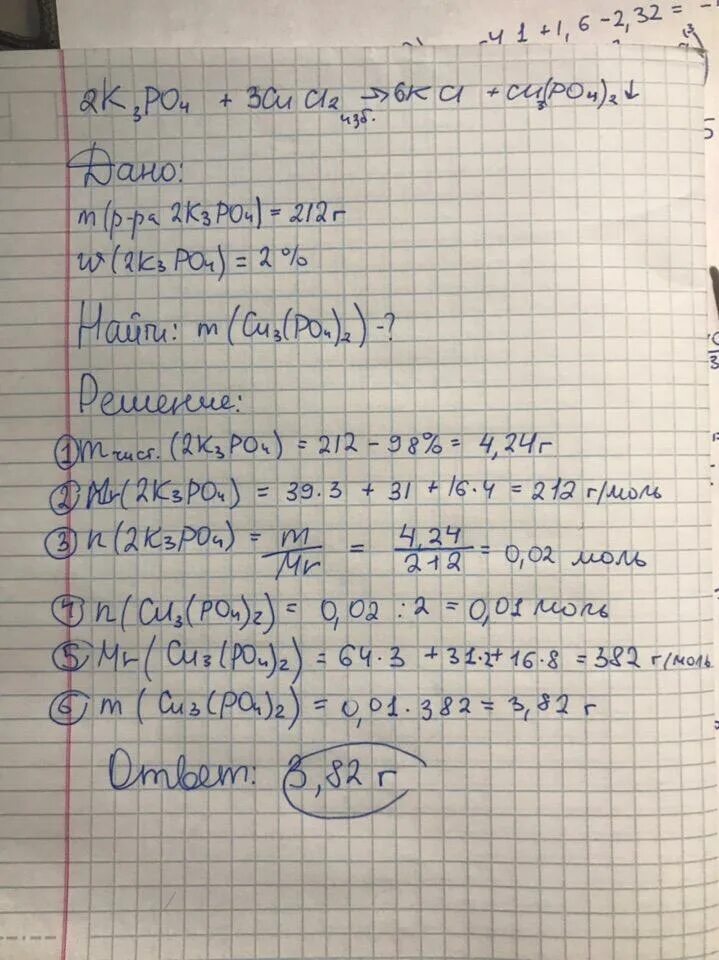 -41+1,6-2,32=
2K₃PO₄ + 3CuCl₂ → 6KCl + Cu₃(PO₄)₂↓
изб.
Дано:
m(р-ра 2K₃PO₄) = 212г
w(2K₃PO₄) = 2%
Найти: m(Cu₃(PO₄)₂)-?
Решение:
① m чист. (2K₃PO₄) = 212 - 98% = 4,24г
② Mr(2K₃PO₄) = 39·3 + 31 + 16·4 = 212 г/моль
③ n(2K₃PO₄) = m/Mr = 4,24/212 = 0,02 моль
④ n(Cu₃(PO₄)₂) = 0,02 : 2 = 0,01 моль
⑤ Mr(Cu₃(PO₄)₂) = 64·3 + 31·2 + 16·8 = 382 г/моль
⑥ m(Cu₃(PO₄)₂) = 0,01·382 = 3,82 г
Ответ: 3,82 г